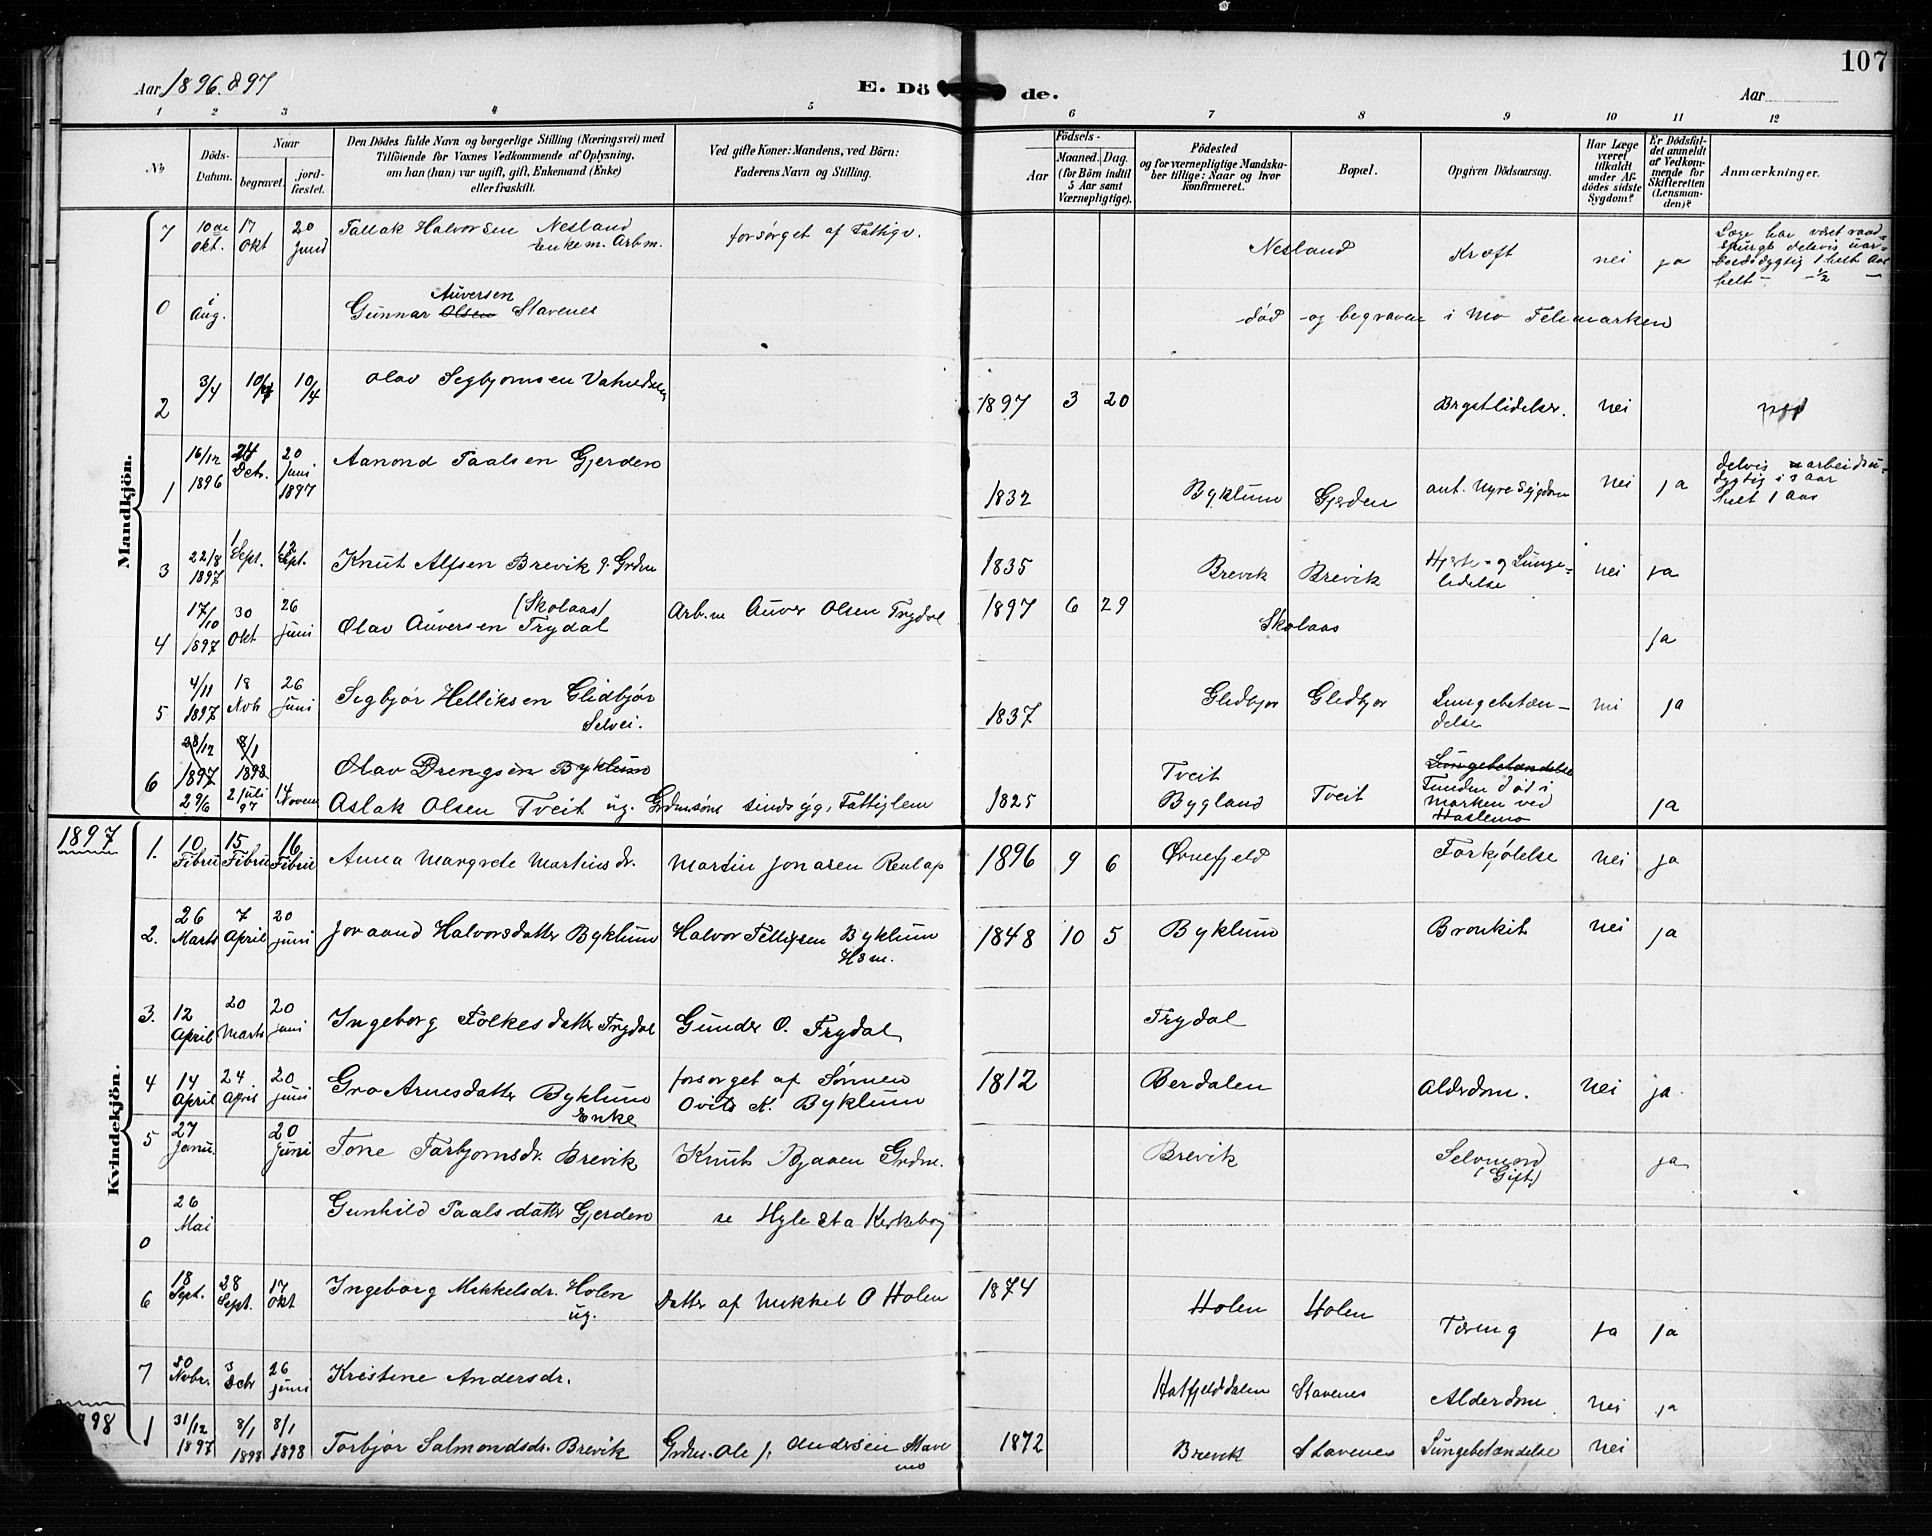 107
Aar 1896. 897
E. Dö de.
Aar
1 2 3 4 5 6 7 8 9 10 11 12
No
Döds-Datum.
Naar
begravet.
jord-fæstet.
Den Dödes fulde Navn og borgerlige Stilling (Næringsvei) med
Tilföiende for Voxnes Vedkommende af Oplysning,
om han (hun) var ugift, gift, Enkemand (Enke)
eller fraskilt.
Ved gifte Koner: Mandens, ved Börn:
Faderens Navn og Stilling.
Födsels-
Aar
Maaned. Dag.
(for Börn indtil
5 Aar samt
Værnepligtige).
Födested
og for værnepligtige Mandska-
ber tillige: Naar og hvor
konfirmeret.
Bopæl.
Opgiven Dödsaarsag.
Har Læge
været
tilkaldt
under Af-
dödes sidste
Sygdom?
Er Dödsfal-
det anmeldt
af Vedkom-
mende for
Skifteretten
(Lensman-
den)?
Anmærkninger.
Mandkjön.
7 10de Okt. 17 Okt 20 Juni Tallak Halvorsen Nesland Enkem. Arbm. forsørget af Fattigv. Nesland Kræft nei ja Læge har været raad-
spurgt delvis uar-
beidsdygtig 1 helt Aar
helt - 1/2 -
0 i Aug. Gunnar Auversen Olsen Stavenes død og begraven i Mo Telemarken
2 3/4 10/4 10/4 Olav Segbjornsen Vatnedalen 1897 3 20 Brystlidelse. nei
1 16/12 1896 24 Decbr. 20 Juni 1897 Aanond Paalsen Gjerden 1832 Byklum Gjerden ant. Nyresygdom nei ja delvis uarbeidsu-
dygtig i 3 Aar
helt 1 Aar
3 22/8 1897 1 Sept. 12 Sept. Knut Alfsen Brevik g. Grdm 1835 Brevik Brevik Hjerte- og Lunge-
lidelse nei ja
4 17/10 1897 30 Okt 26 Juni Olav Auversen (Skolaas) Trydal Arb.m Auver Olsen Trydal 1897 6 29 Skolaas ja
5 4/11 1897 18 Nov 26 Juni Segbjør Helliksen Glidbjør
Selvei. 1837 Gledbjor Gledbjor Lungebetæn-
delse nei ja
6 28/12 1897 8/1 1898 Olav Drengsen Byklum Lungebetændelse
29/6 2 Juli 97 14 Novem Aslak Olsen Tveit ug. Grdmsøns sindsyg, Fattiglem 1825 Tveit Bygland Tveit Funden død i
marken ved
Hoslemo ja
1897
Kvindekjön.
1. 10 Febru 15 Febru 16 Febru Anna Margrete Martinsdr. Martin Jonasen Renlap 1896 9 6 Ørnefjeld Forkjølelse nei ja
2. 26 Marts 7 April 20 Juni Joraand Halvorsdatter Byklum Halvor Tellefsen Byklum
Hsm. 1848 10 5 Byklum Bronkit nei ja
3. 12 April 20 Marts 20 Juni Ingeborg Folkesdatter Trydal Gunder O. Trydal Trydal
4 14 April 24 April 20 Juni Gro Arnesdatter Byklum
Enke forsørget af Sønnen
Ovild K. Byklum 1812 Berdalen Alderdom. nei ja
5 27 Janu. 20 Juni Tone Tarbjornsdr. Brevik Knut Bjaaen Grdm. Brevik Selvmord
(Gift) ja
0 26 Mai Gunhild Paalsdatter Gjerden se Hylestad Kirkebog
6 18 Sept. 28 Sept. 17 Okt Ingeborg Mikkelsdr. Holen
ug. Datter af Mikkel O Holen 1874 Holen Holen Tæring ja ja
7 20 Novbr. 3 Decbr 26 Juni Kristine Andersdr. Hatfjelddalen Stavenes Alderdom nei ja
98
1 31/12 1897 8/1 1898 8/1 1898 Torbjør Salmondsdr. Brevik Grdm. Ole J. Andersen Stave
nes 1872 Brevik Stavenes Lungebetændelse nei